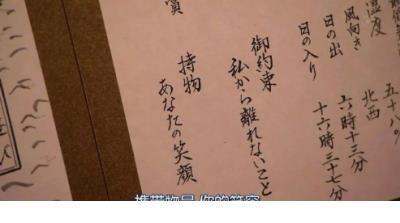 湿度 五十八%
風向き 北西
日の出 六時十三分
日の入り 十六時三十七分
御約束
私から離れないこと
持物
あなたの笑顔
賞
攜帶物品 你的笑容